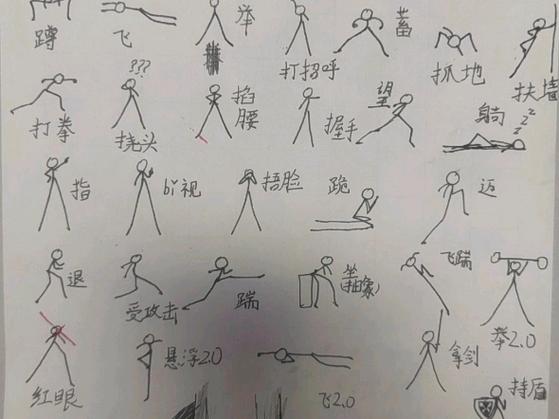 蹲
飞
举
打招呼
蓄
抓地
扶墙
打拳
???
挠头
掐腰
握手
望
躺
zzz
指
bi视
捂脸
跪
迈
退
受攻击
踹
坐
(抽象)
飞踹
举2.0
红眼
悬浮2.0
飞2.0
拿剑
持盾